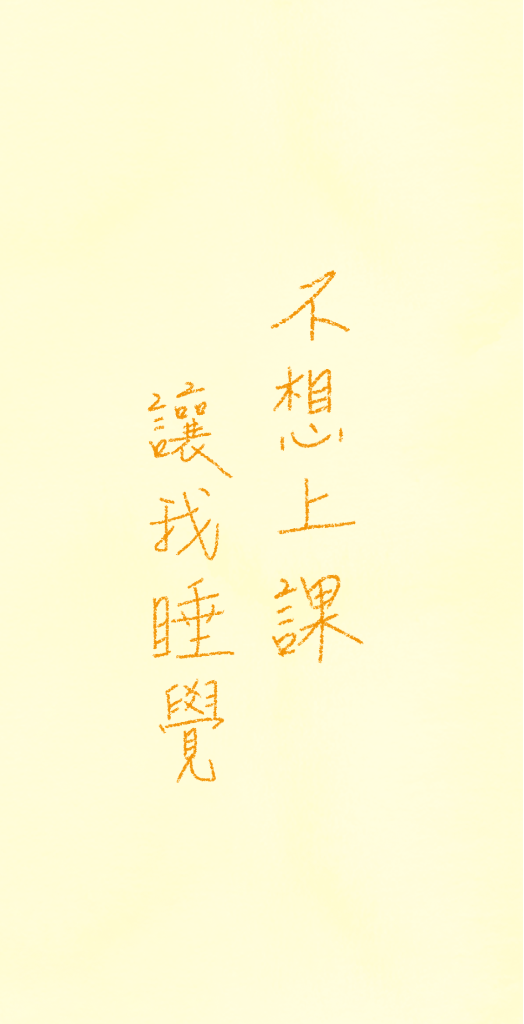 不想上課
讓我睡覺